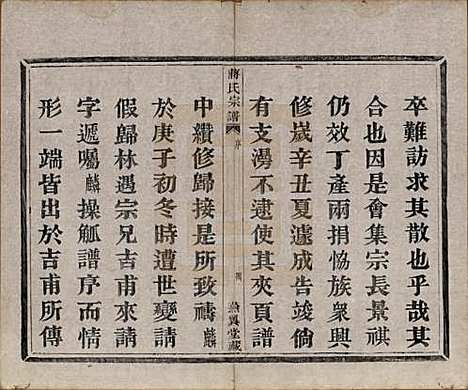 卒難訪求其散也乎哉其
合也因是會集宗長景祺
仍效丁產兩捐恊族衆興
修嵗辛丑夏遽成告竣倘
有支漫不逮使其夾頁譜
蔣氏宗譜
序
燕翼堂藏
中纘修歸接是所致禱麟
於庚子初冬時遭世變請
假歸林遇宗兄吉甫來請
字遞囑麟操觚譜序而情
形一端皆出於吉甫所傳